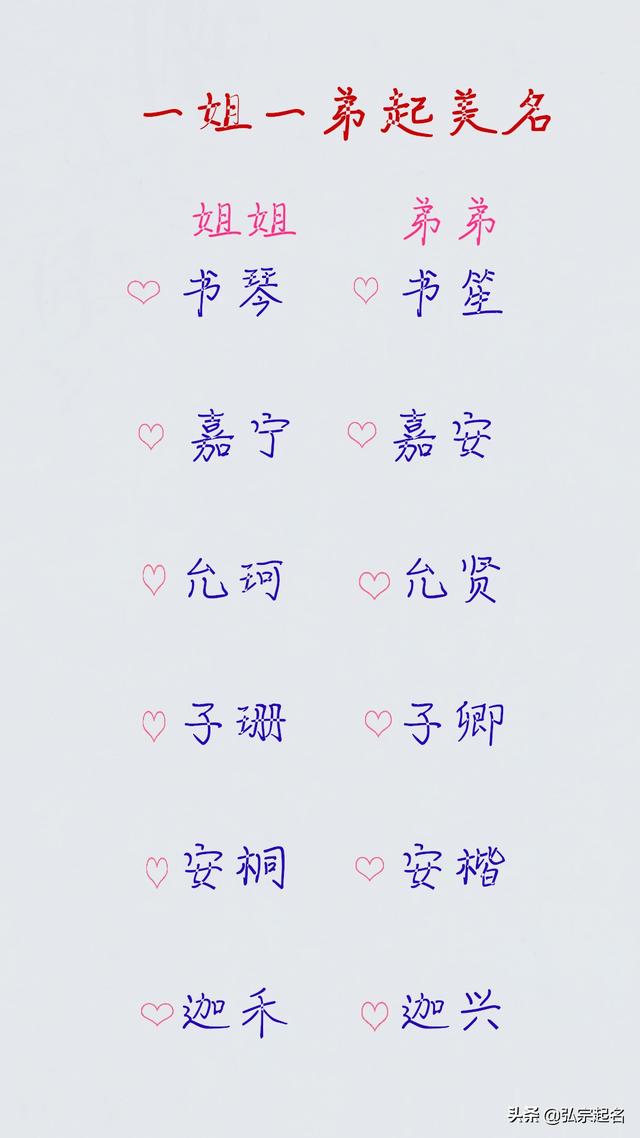 一姐一弟起美名
姐姐 弟弟
♡书琴 ♡书笙
♡嘉宁 ♡嘉安
♡允珂 ♡允贤
♡子珊 ♡子卿
♡安桐 ♡安楷
♡迦禾 ♡迦兴
头条 @弘宗起名